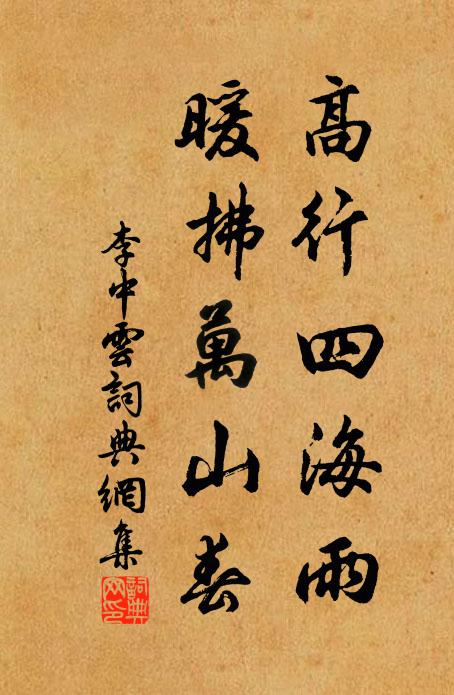 高行四海雨
暖拂萬山春
李中雲詞典網集
詞典网印